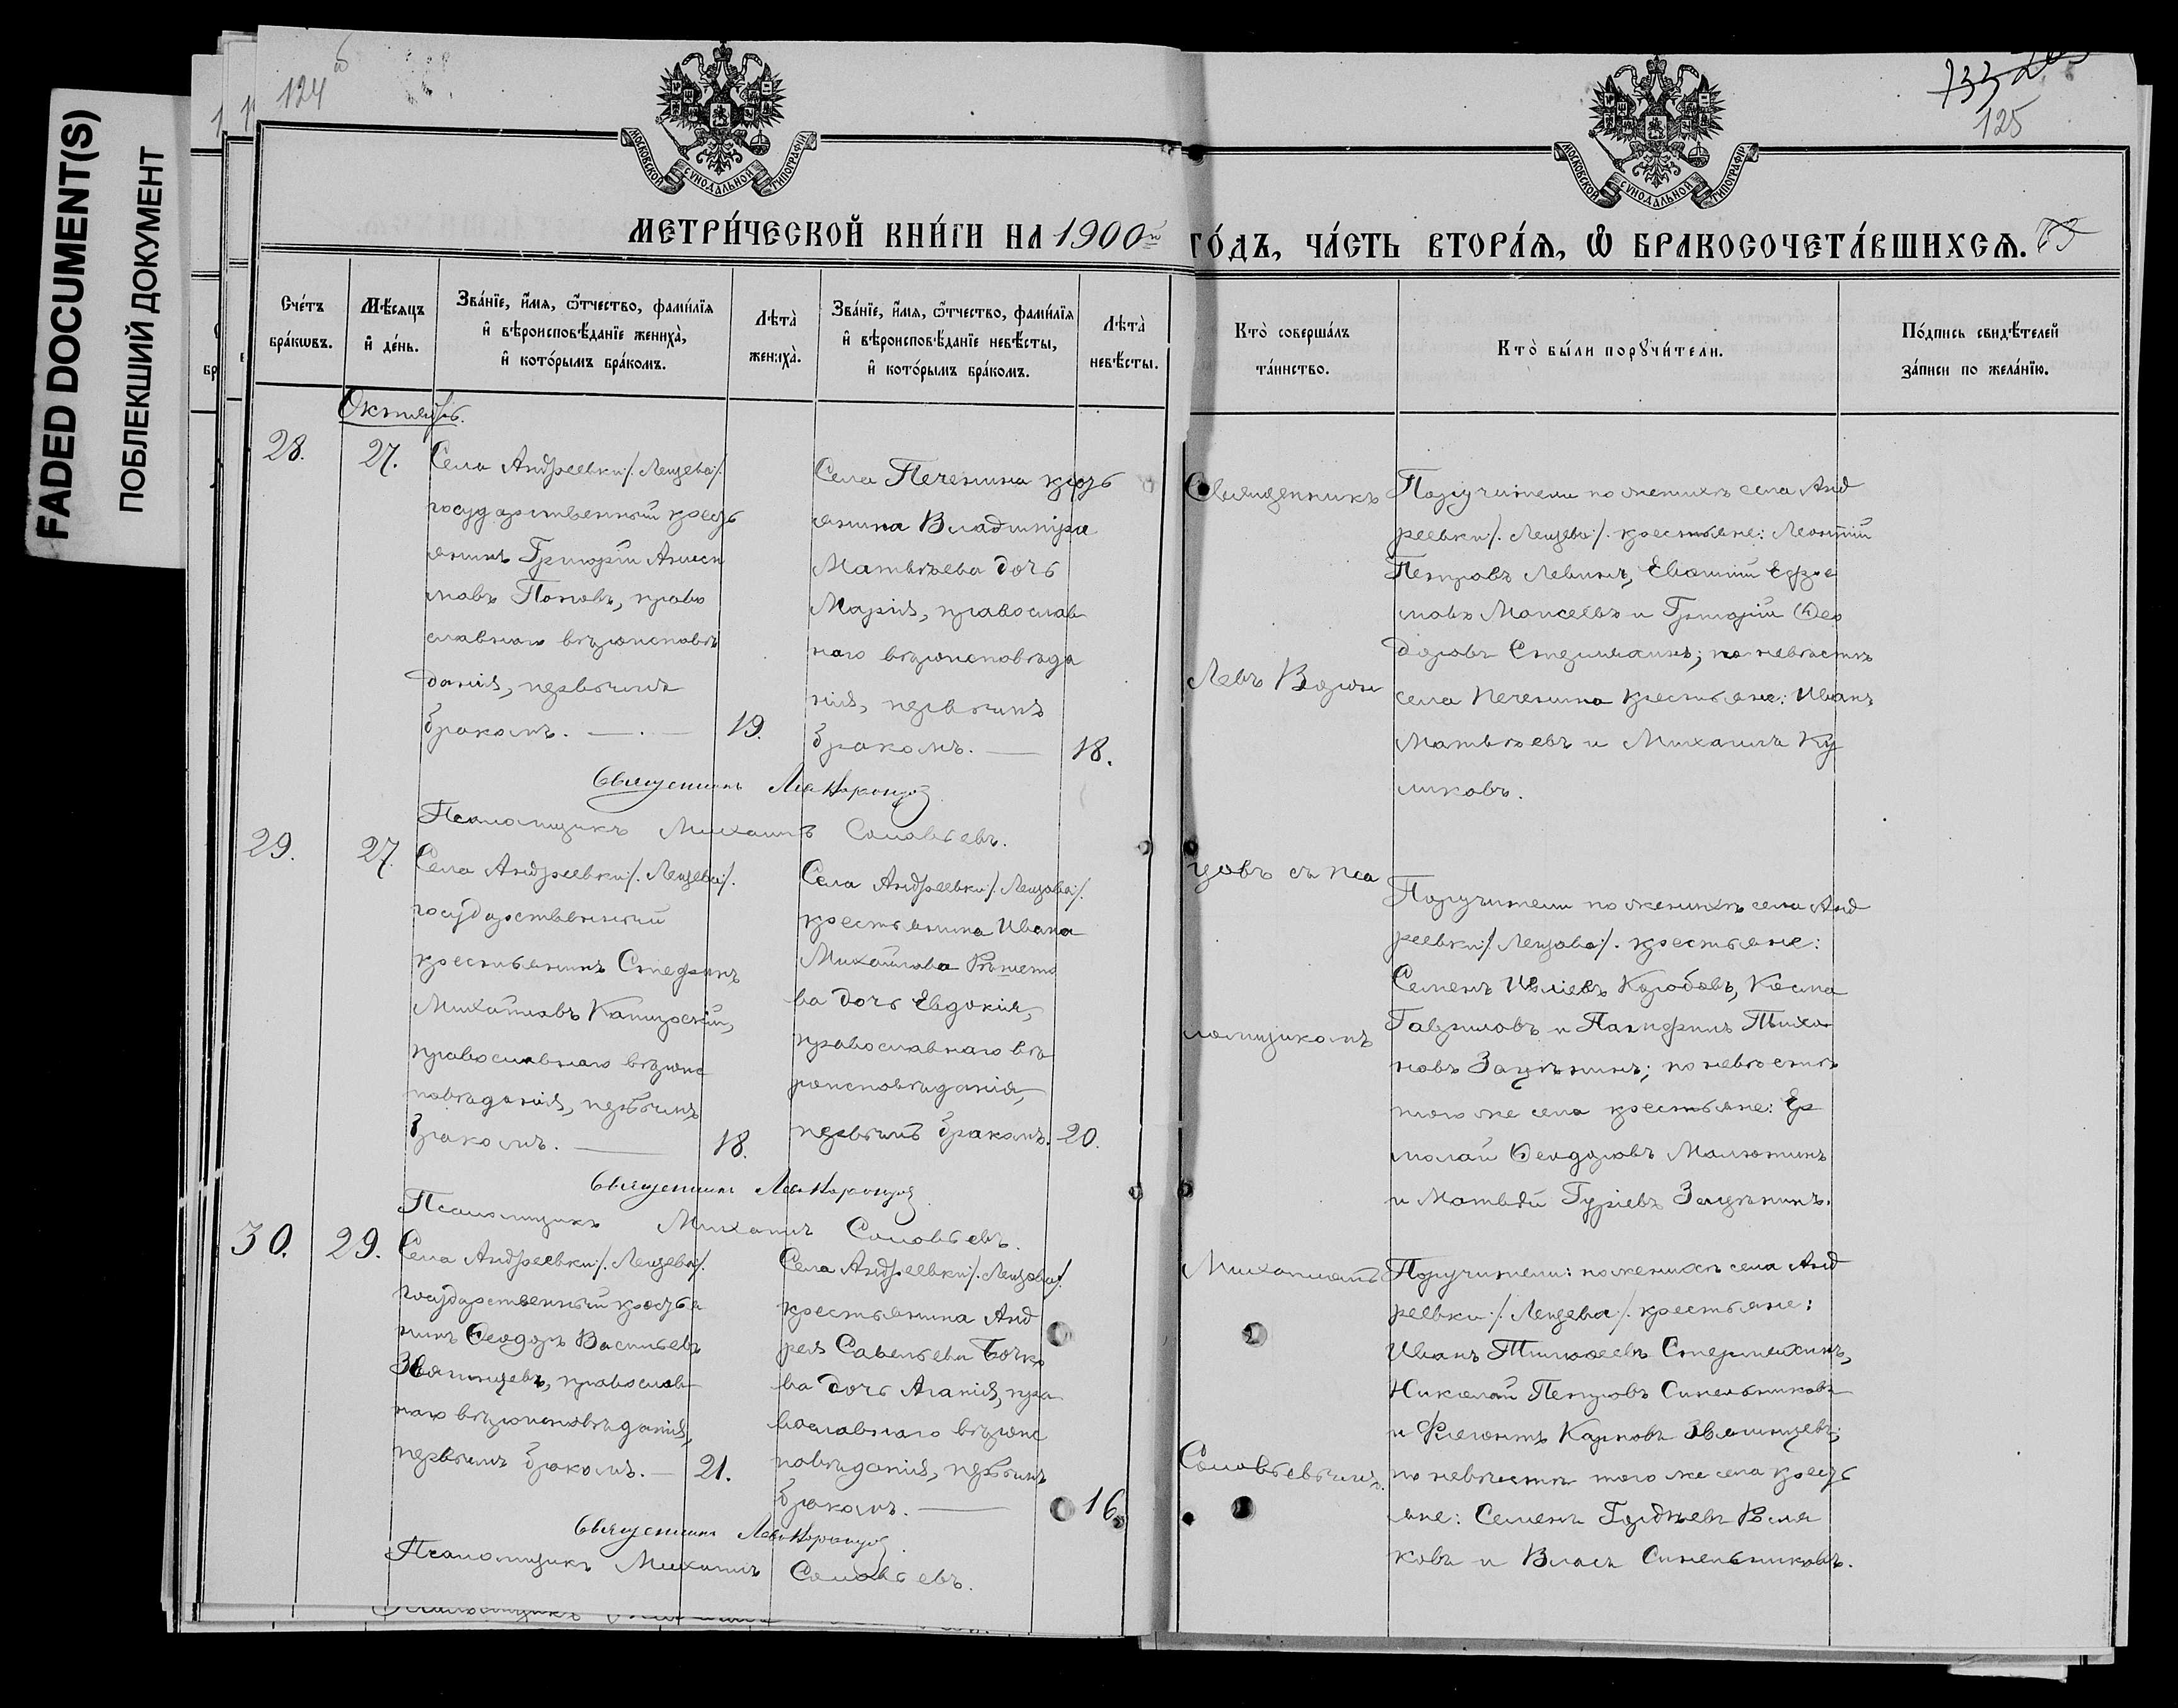 FADED DOCUMENT(S)
ПОБЛЕКШИЙ ДОКУМЕНТ
124
125
МОСКОВСКОЙ СѴНОДАЛЬНОЙ ТИПОГРАФІИ
МОСКОВСКОЙ СѴНОДАЛЬНОЙ ТИПОГРАФІИ
МЕТРИ́ЧЕСКОЙ КНИ́ГИ НА 1900й
ГО́ДЪ, ЧА́СТЬ ВТОРА́Я, Ѿ БРАКОСОЧЕТА́ВШИХСЯ.
Сче́тъ
бра́кωвъ.
Мѣ́сяцъ
и҆ де́нь.
Зва́нїе, и҆́мя, ѻ҆́тчество, фами́лїя
и҆ вѣроисповѣ́данїе жениха̀,
и҆ кото́рымъ бра́комъ.
Лѣта̀
жениха̀.
Зва́нїе, и҆́мя, ѻ҆́тчество, фами́лїя
и҆ вѣроисповѣ́данїе невѣ́сты,
и҆ кото́рымъ бра́комъ.
Лѣта̀
невѣ́сты.
Кто̀ соверша́лъ
та́инство.
Кто̀ бы́ли порꙋчи́тели.
По́дпись свидѣ́телей
за́писи по жела́нїю.
Октябрь.
28.
27.
Села Андреевки /: Лещева :/
государственный кресть
янинъ Григорій Аниси
мовъ Поповъ, право
славнаго вѣроисповѣ
данія, первымъ
бракомъ.
19.
Села Печенина кресть
янина Владиміра
Матвѣева дочь
Марія, православ
наго вѣроисповѣда
нія, первымъ
бракомъ.
18.
Священникъ
Левъ Ворон
цовъ съ пса
ломщикомъ
Михаиломъ
Соловьевымъ.
Поручители по женихѣ села Анд
реевки /: Лещева :/ крестьяне: Леонтій
Петровъ Левинъ, Евѳимій Ефре
мовъ Моисеевъ и Григорій Ѳео
доровъ; по невѣстѣ
села Печенина крестьяне: Иванъ
Матвѣевъ и Михаилъ Ку
ликовъ.
Священникъ Левъ Воронцовъ
Псаломщикъ Михаилъ Соловьевъ.
29.
27.
Села Андреевки /: Лещева :/
государственный
крестьянинъ Стефанъ
Михайловъ
православнаго вѣроис
повѣданія, первымъ
бракомъ.
18.
Села Андреевки /: Лещева :/
крестьянина Ивана
Михайлова Рѣшето
ва дочь Евдокія,
православнаго вѣ
роисповѣданія,
первымъ бракомъ.
20.
Поручители по женихѣ села Анд
реевки /: Лещева :/ крестьяне:
Семенъ Иліевъ Коробовъ, Косма
Гавриловъ и Памфилъ Тихо
новъ Зацѣпинъ; по невѣстѣ
того же села крестьяне: Ер
молай Ѳеодоровъ Малютинъ
и Матвѣй Гуріевъ Зацѣпинъ.
Священникъ Левъ Воронцовъ
Псаломщикъ Михаилъ Соловьевъ.
30.
29.
Села Андреевки /: Лещева :/
государственный крестья
нинъ Ѳеодоръ Васильевъ
Звягинцевъ, православ
наго вѣроисповѣданія,
первымъ бракомъ.
21.
Села Андреевки /: Лещева :/
крестьянина Анд
рея Савельева Бочко
ва дочь Агапія, пра
вославнаго вѣроис
повѣданія, первымъ
бракомъ.
16.
Поручители: по женихѣ села Анд
реевки /: Лещева :/ крестьяне:
Иванъ Тимоѳеевъ
Николай Петровъ Синельниковъ
и Филиппъ Карповъ Звягинцевъ;
по невѣстѣ того же села кресть
яне: Семенъ Гордѣевъ
ковъ и Власъ Синельниковъ.
Священникъ Левъ Воронцовъ
Псаломщикъ Михаилъ Соловьевъ.